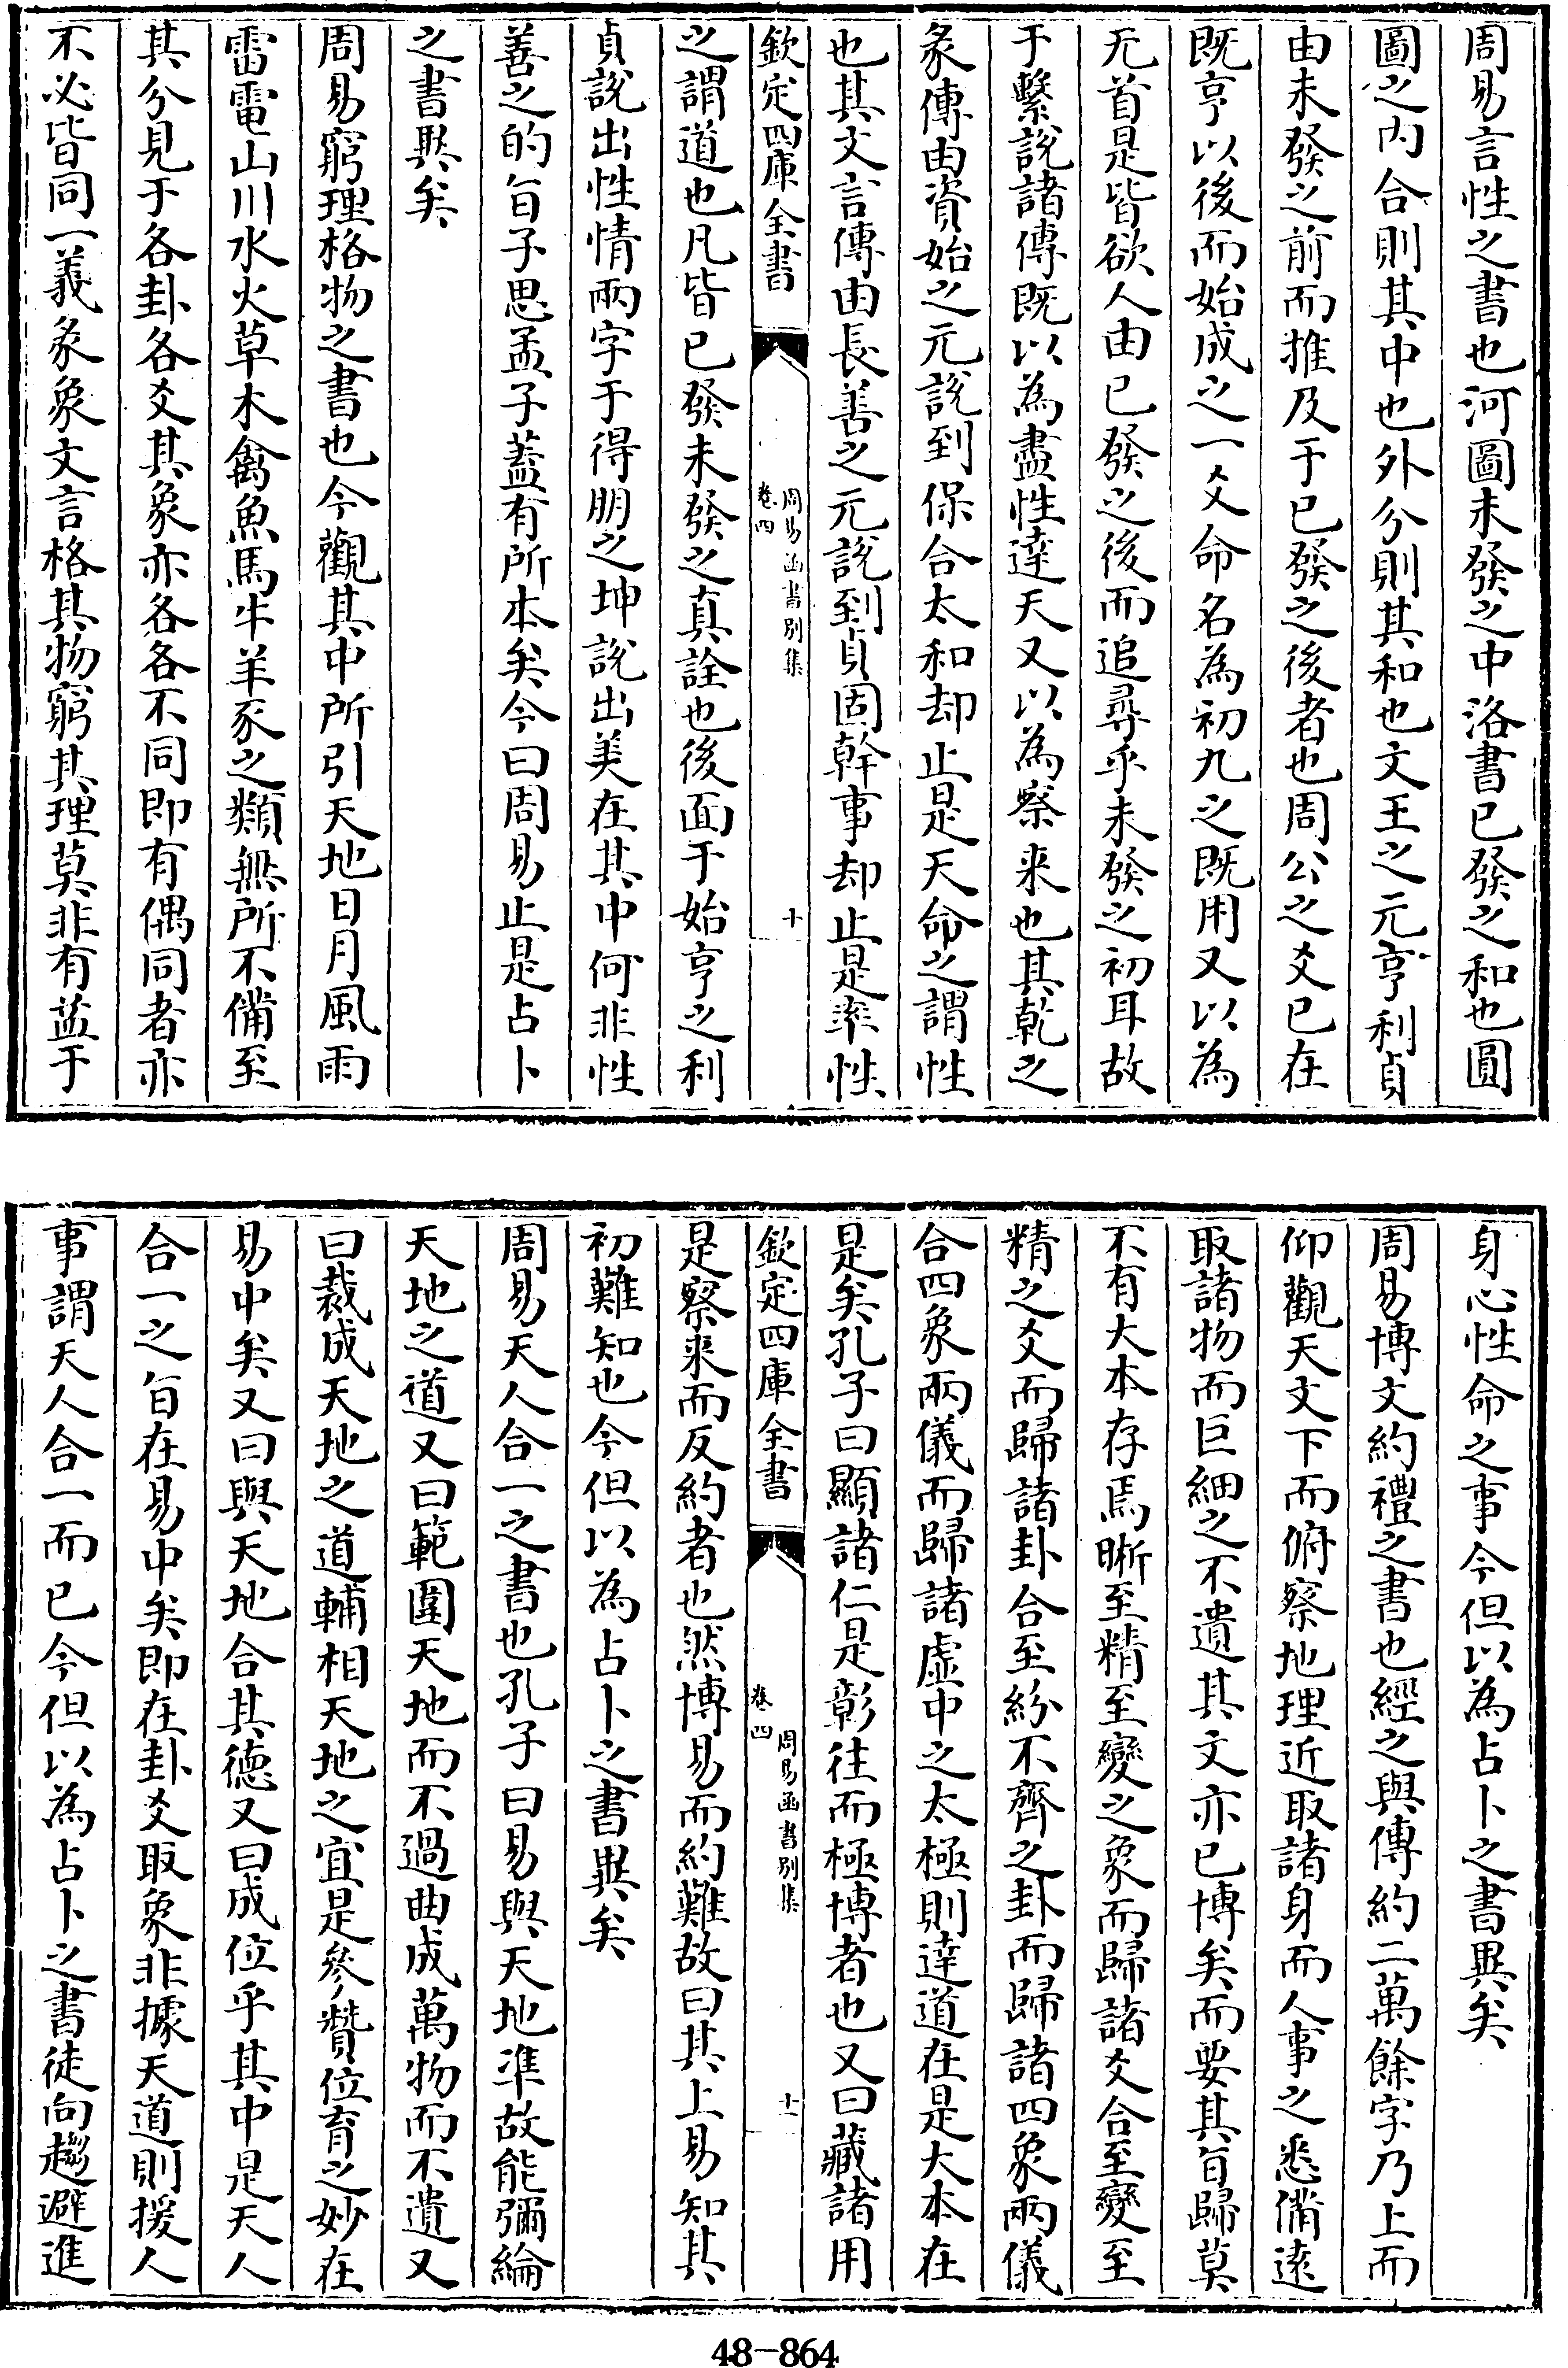 周易言性之書也河圖未發之中洛書已發之和也圓
圖之内合則其中也外分則其和也文王之元亨利貞
由未發之前而推及于已發之後者也周公之爻已在
既亨以後而始成之一爻命名為初九之既用又以為
无首是皆欲人由已發之後而追尋乎未發之初耳故
于繫說諸傳既以為盡性達天又以為察來也其乾之
彖傳由資始之元說到保合太和却止是天命之謂性
也其文言傳由長善之元說到貞固幹事却止是率性
欽定四庫全書
周易函書別集
卷四
十
之謂道也凡皆已發未發之真詮也後面于始亨之利
貞說出性情兩字于得朋之坤說出美在其中何非性
善之的旨子思孟子蓋有所本矣今曰周易止是占卜
之書異矣
周易窮理格物之書也今觀其中所引天地日月風雨
雷電山川水火草木禽魚馬牛羊豕之類無所不備至
其分見于各卦各爻其象亦各各不同即有偶同者亦
不必皆同一義彖象文言格其物窮其理莫非有益于
身心性命之事今但以為占卜之書異矣
周易博文約禮之書也經之與傳約二萬餘字乃上而
仰觀天文下而俯察地理近取諸身而人事之悉備逺
取諸物而巨細之不遺其文亦已博矣而要其旨歸莫
不有大本存焉晰至精至變之象而歸諸爻合至變至
精之爻而歸諸卦合至紛不齊之卦而歸諸四象兩儀
合四象兩儀而歸諸虚中之太極則達道在是大本在
是矣孔子曰顯諸仁是彰往而極博者也又曰藏諸用
欽定四庫全書
周易函書別集
卷四
十一
是察来而反約者也然博易而約難故曰其上易知其
初難知也今但以為占卜之書異矣
周易天人合一之書也孔子曰易與天地凖故能彌綸
天地之道又曰範圍天地而不過曲成萬物而不遺又
曰裁成天地之道輔相天地之宜是參贊位育之妙在
易中矣又曰與天地合其德又曰成位乎其中是天人
合一之旨在易中矣即在卦爻取象非據天道則援人
事謂天人合一而已今但以為占卜之書徒向趨避進
48-864